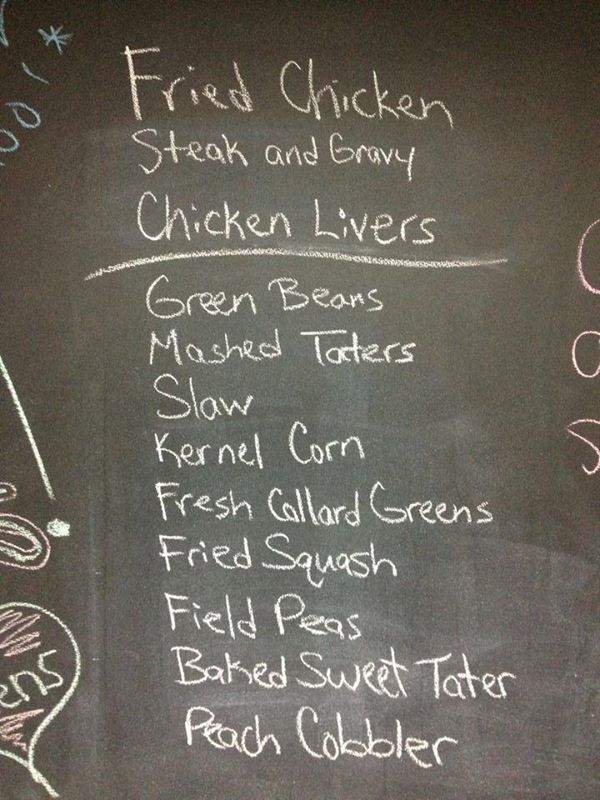 Fried Chicken
Steak and Gravy
Chicken Livers
Green Beans
Mashed Taters
Slaw
Kernel Corn
Fresh Collard Greens
Fried Squash
Field Peas
Baked Sweet Tater
Peach Cobbler